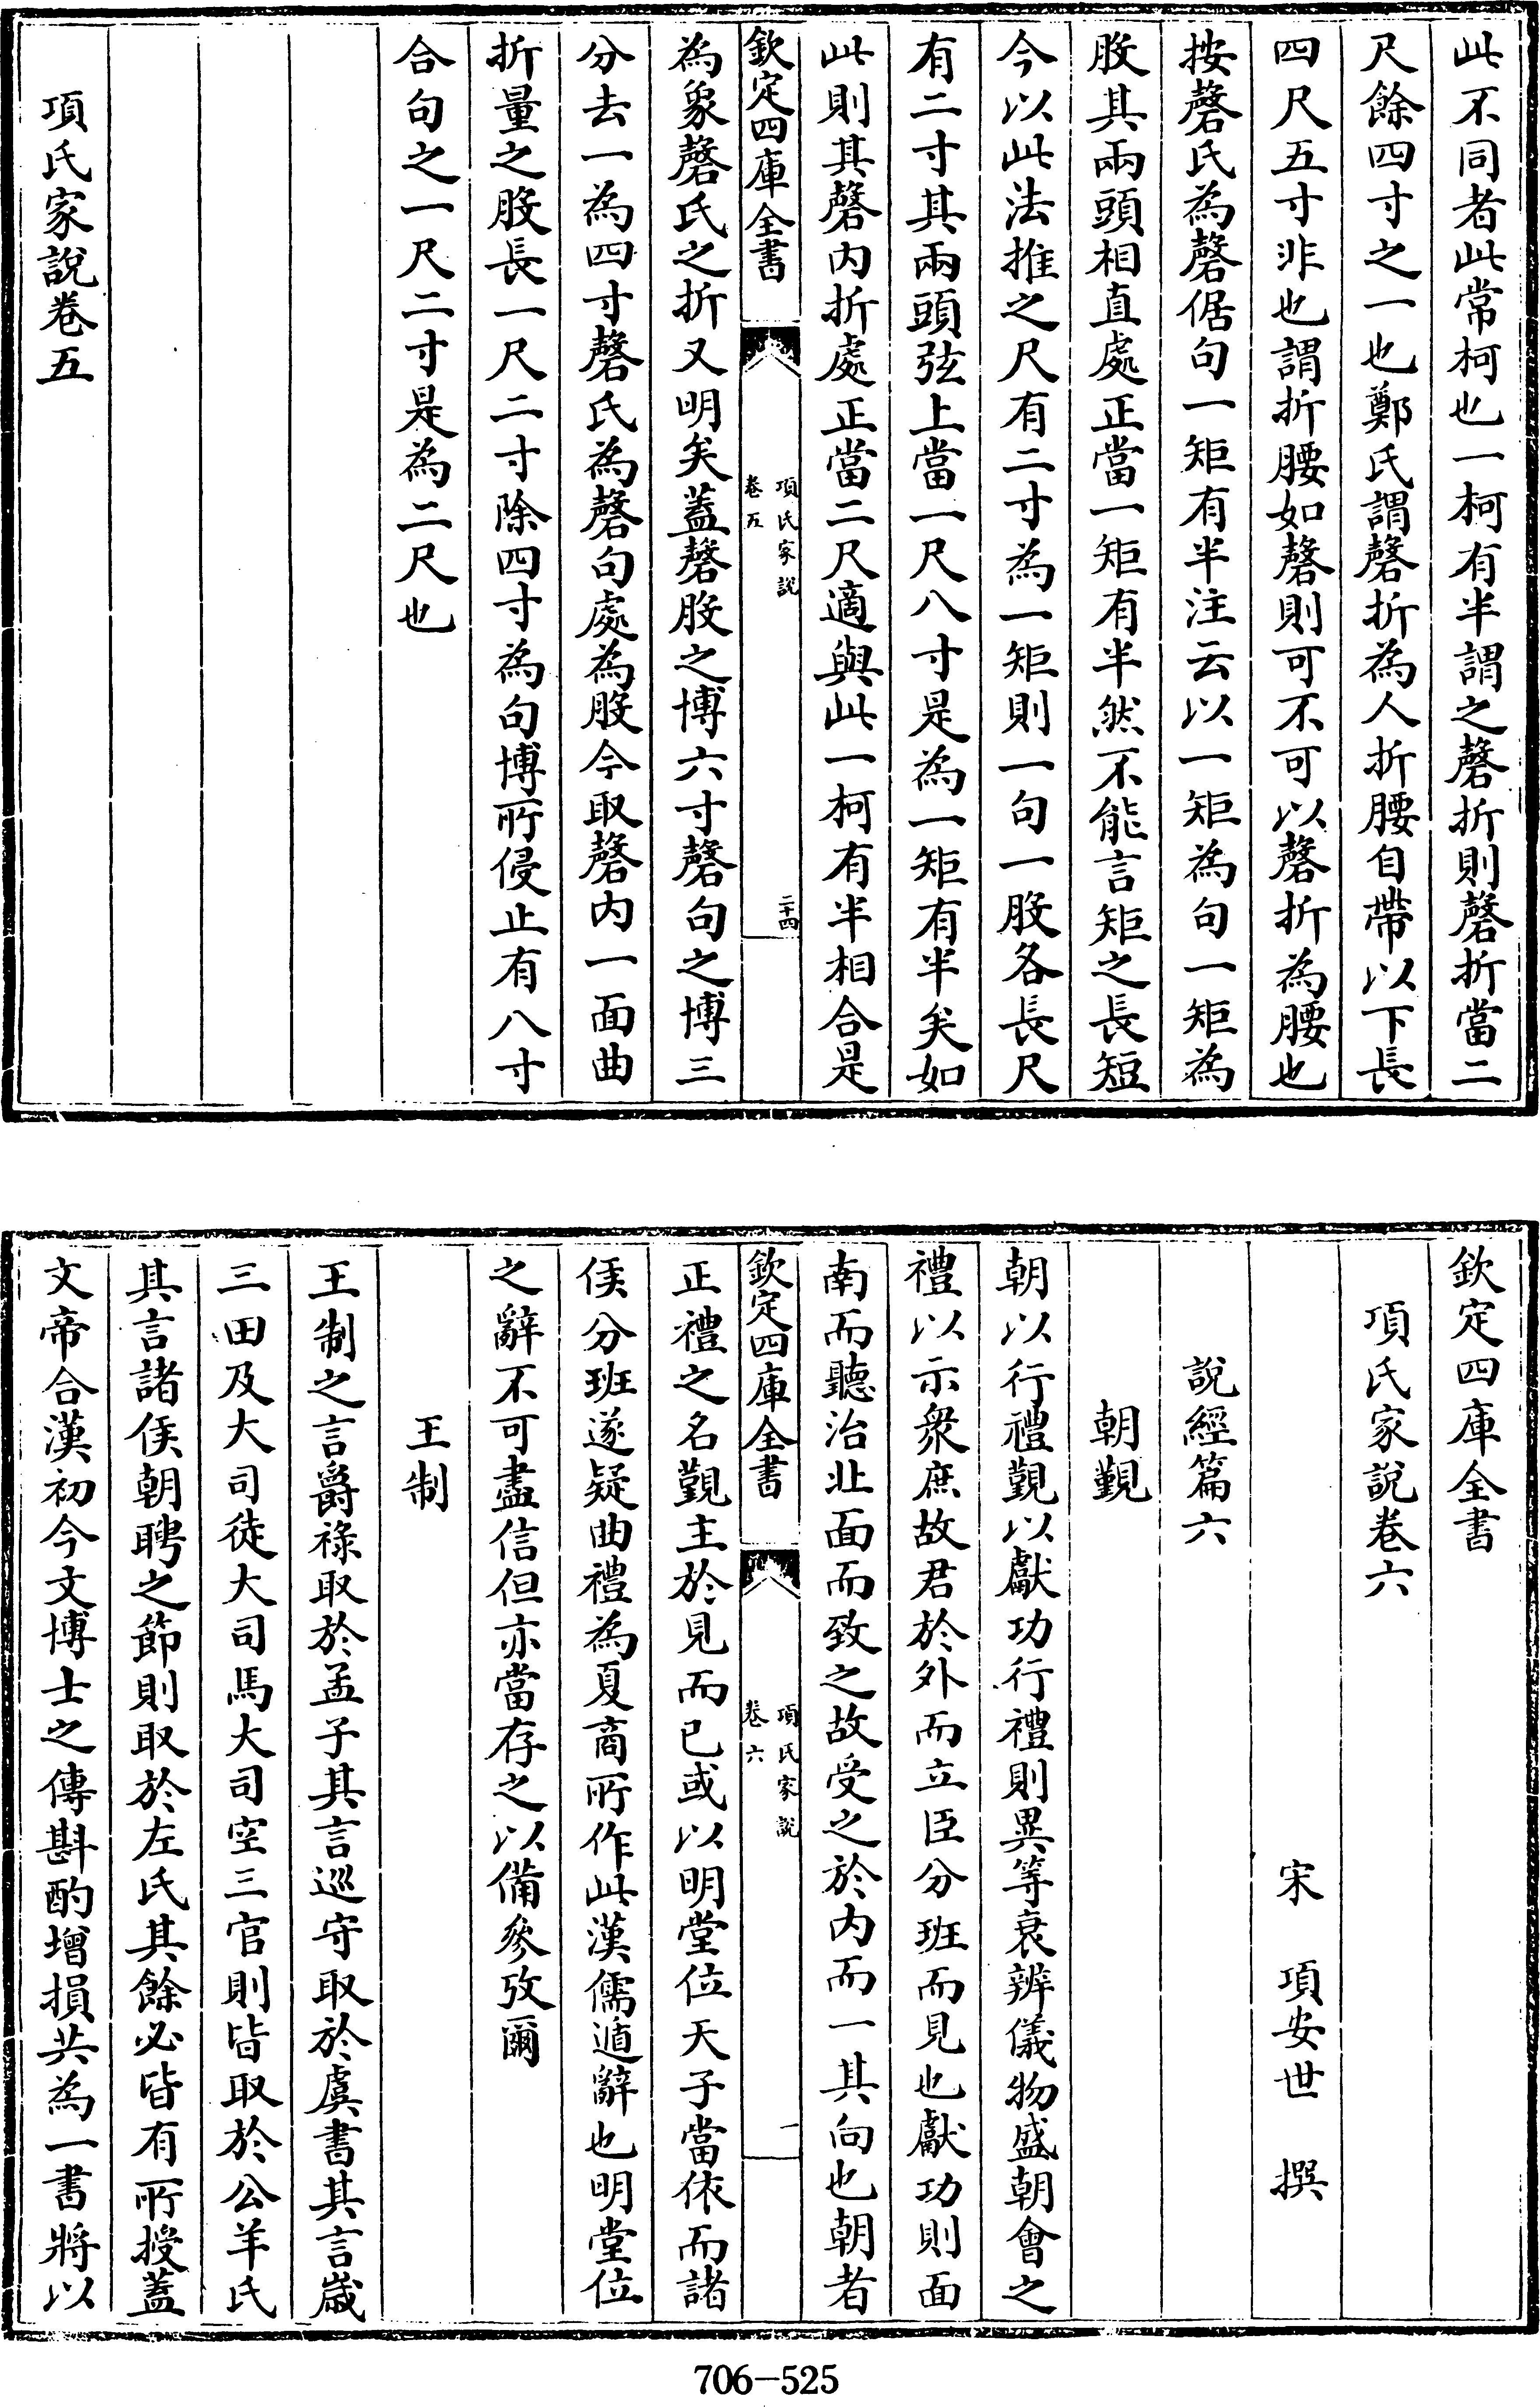 此不同者此常柯也一柯有半謂之磬折則磬折當二
尺餘四寸之一也鄭氏謂磬折為人折腰自帶以下長
四尺五寸非也謂折腰如磬則可不可以磬折為腰也
按磬氏為磬倨句一矩有半注云以一矩為句一矩為
股其兩頭相直處正當一矩有半然不能言矩之長短
今以此法推之尺有二寸為一矩則一句一股各長尺
有二寸其兩頭弦上當一尺八寸是為一矩有半矣如
此則其磬內折處正當二尺適與此一柯有半相合是
欽定四庫全書
項氏家說
卷五
二十四
為象磬氏之折又明矣蓋磬股之博六寸磬句之博三
分去一為四寸磬氏為磬句處為股今取磬內一面曲
折量之股長一尺二寸除四寸為句博所侵止有八寸
合句之一尺二寸是為二尺也
項氏家說卷五
欽定四庫全書
項氏家說卷六
宋 項安世 撰
說經篇六
朝覲
朝以行禮覲以獻功行禮則異等衰辨儀物盛朝會之
禮以示衆庶故君於外而立臣分班而見也獻功則面
南而聽治北面而致之故受之於內而一其向也朝者
欽定四庫全書
項氏家說
卷六
一
正禮之名覲主於見而已或以明堂位天子當依而諸
侯分班遂疑曲禮為夏商所作此漢儒遁辭也明堂位
之辭不可盡信但亦當存之以備參攷爾
王制
王制之言爵祿取於孟子其言巡守取於虞書其言歲
三田及大司徒大司馬大司空三官則皆取於公羊氏
其言諸侯朝聘之節則取於左氏其餘必皆有所授蓋
文帝合漢初今文博士之傳斟酌增損共為一書將以
706-525